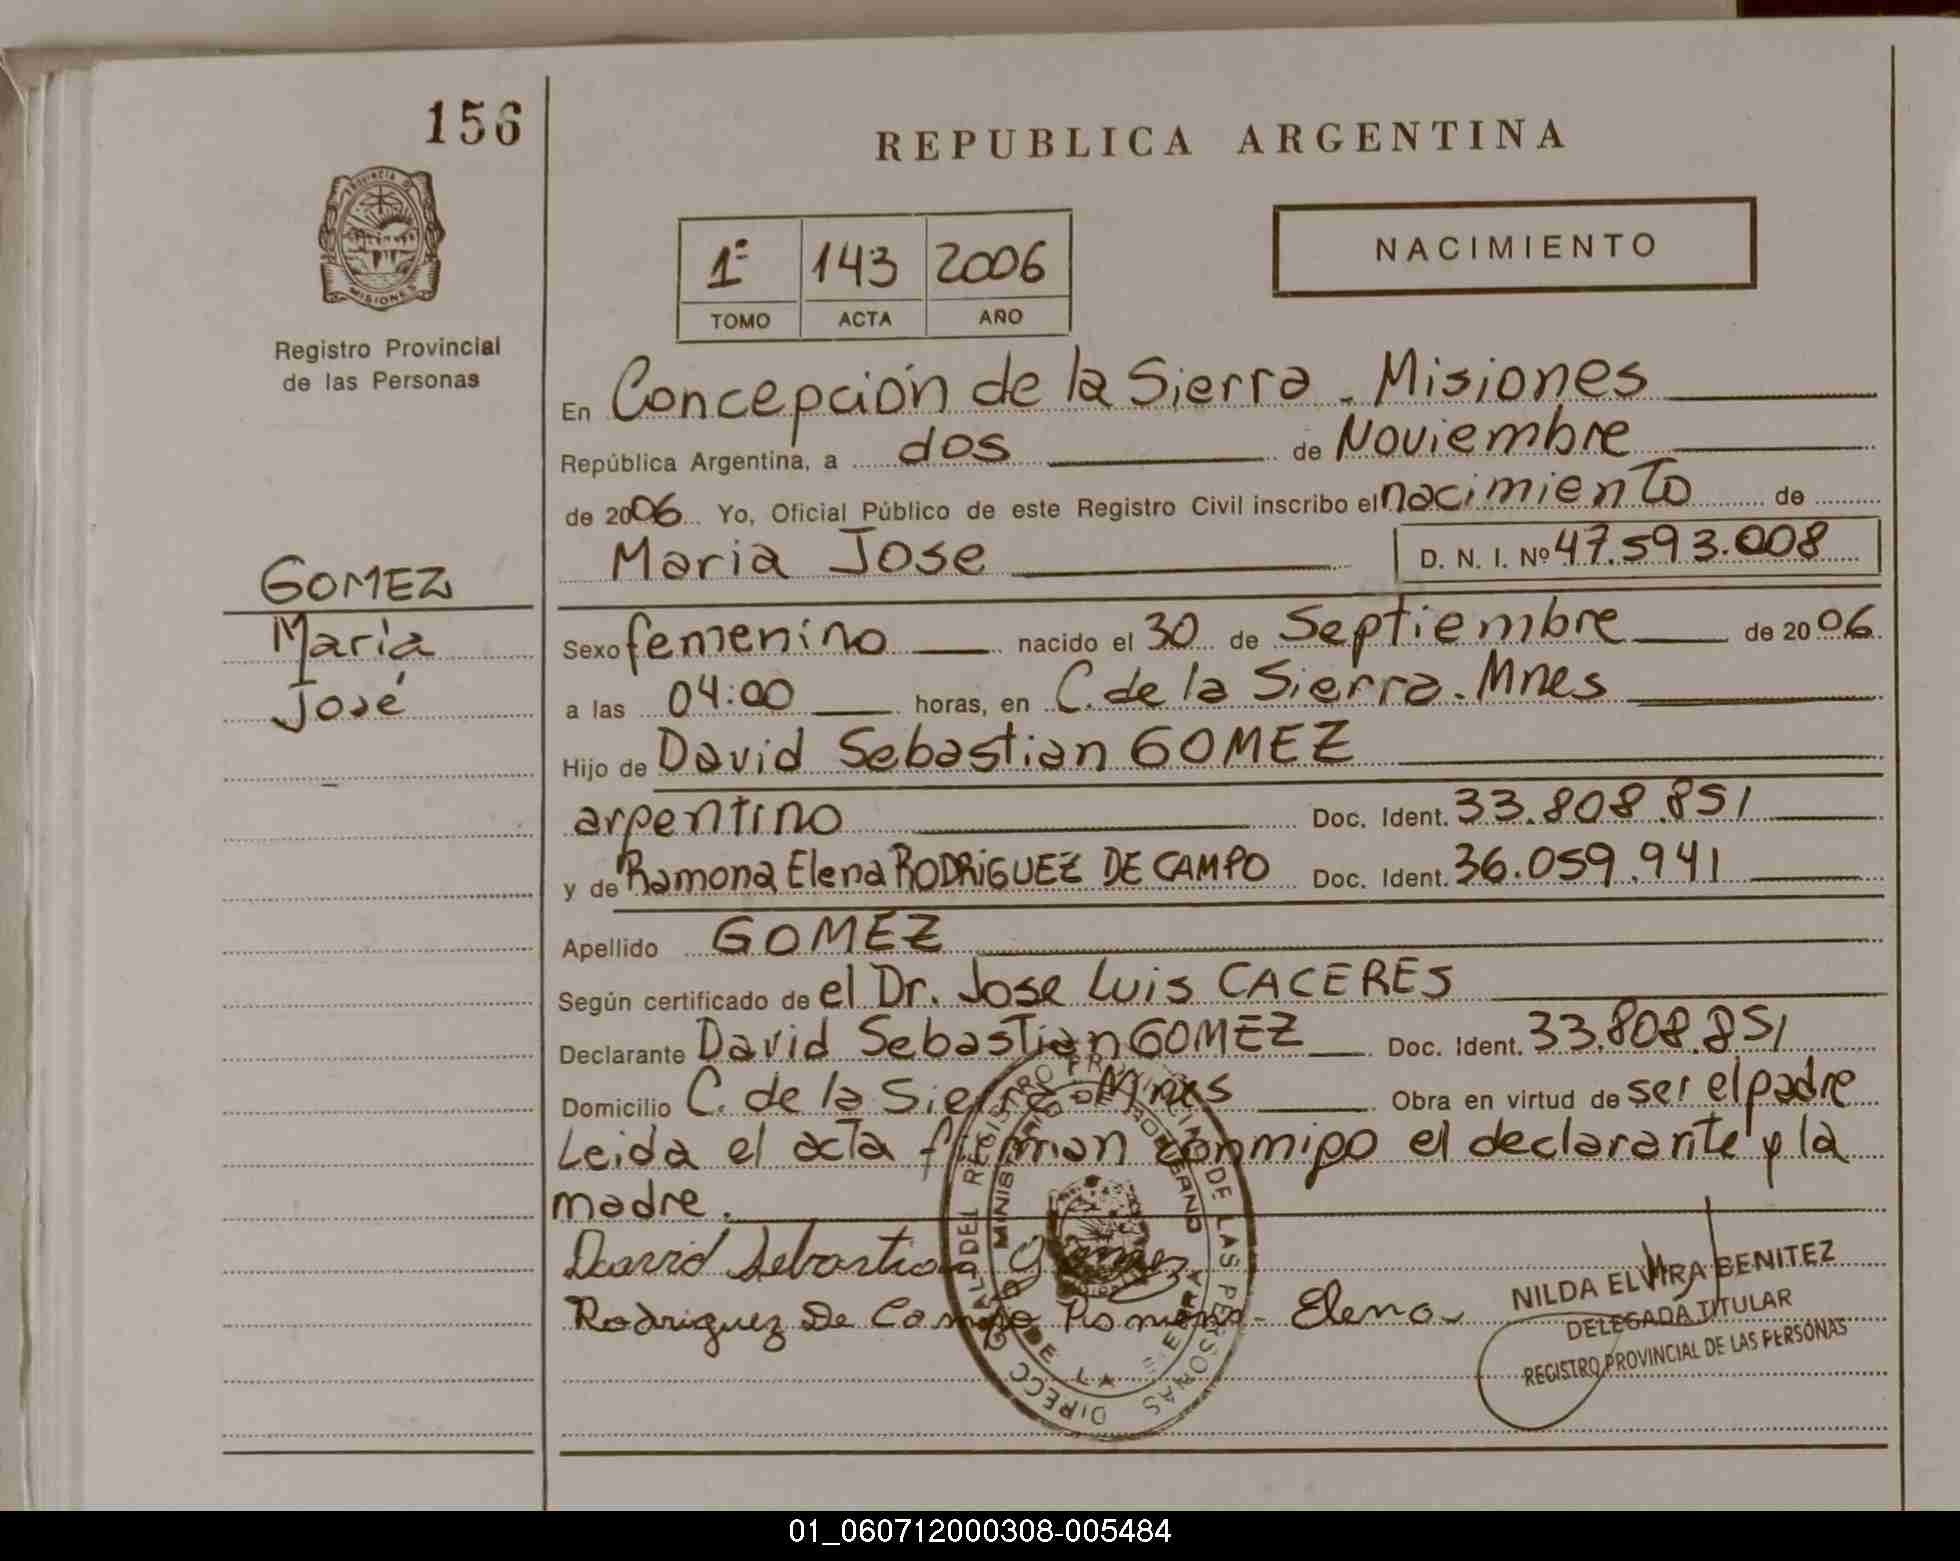 156
REPUBLICA ARGENTINA
PROVINCIA DE
MISIONES
Registro Provincial
de las Personas
1º 143 2006
TOMO ACTA AÑO
NACIMIENTO
En Concepción de la Sierra - Misiones
República Argentina, a dos de Noviembre
de 2006 Yo, Oficial Público de este Registro Civil inscribo el nacimiento de
Maria Jose D. N. I. Nº 47.593.008
GOMEZ
María
José
Sexo femenino nacido el 30 de Septiembre de 2006
a las 04:00 horas, en C. de la Sierra. Mnes
Hijo de David Sebastian GOMEZ
argentino Doc. Ident. 33.808.851
y de Ramona Elena RODRIGUEZ DE CAMPO Doc. Ident. 36.059.941
Apellido GOMEZ
Según certificado de el Dr. Jose Luis CACERES
Declarante David Sebastian GOMEZ Doc. Ident. 33.808.851
Domicilio C. de la Sierra - Mnes Obra en virtud de ser el padre
Leida el acta firman conmigo el declarante y la
madre.
David Sebastian Gomez
Rodriguez De Campo Ramona - Elena
NILDA ELVIRA BENITEZ
DELEGADA TITULAR
REGISTRO PROVINCIAL DE LAS PERSONAS
01_060712000308-005484